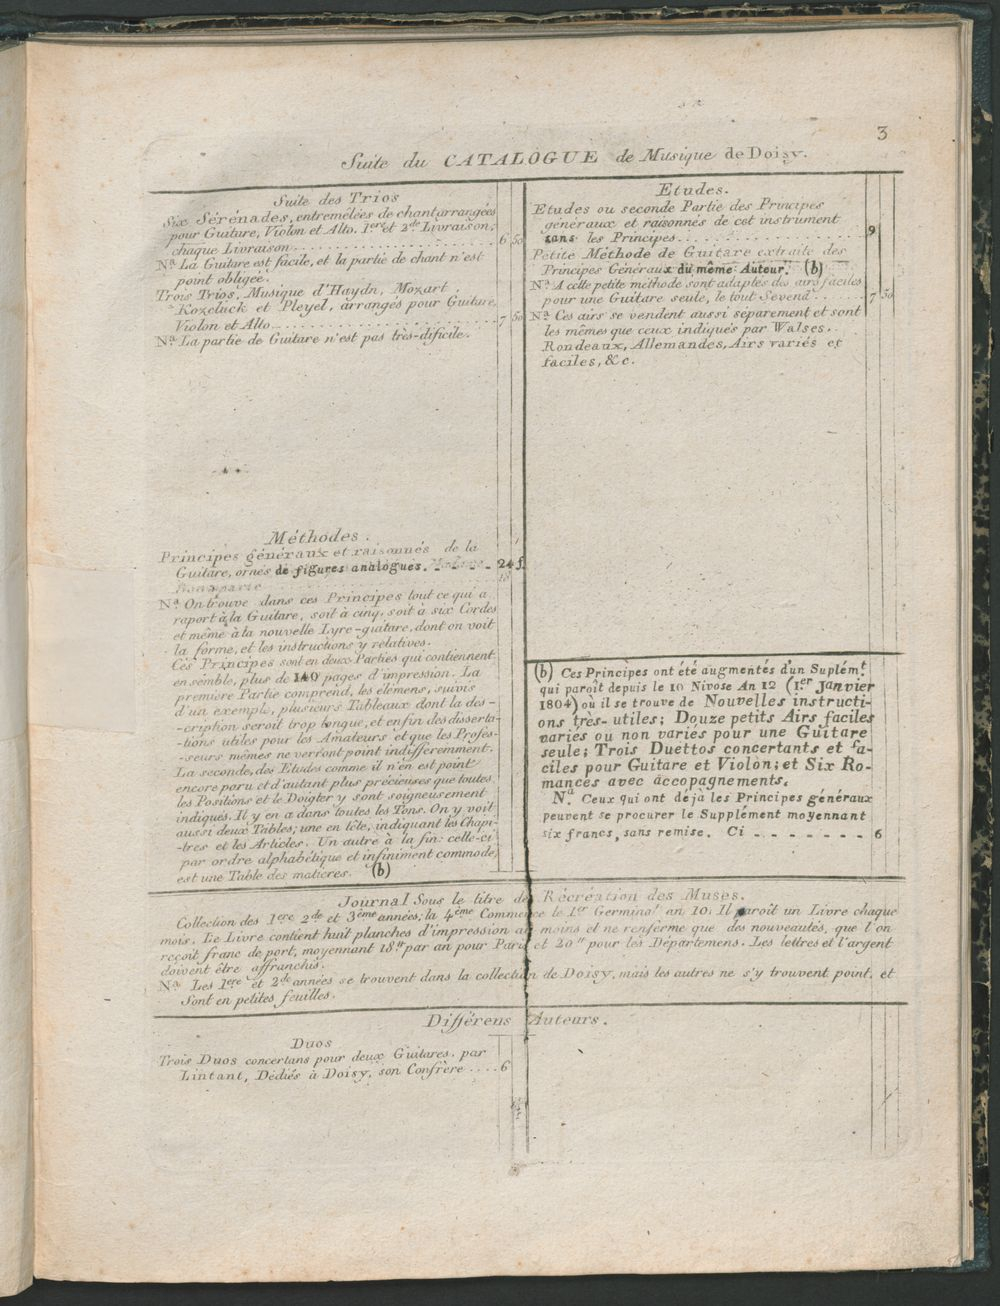 3
Suite du CATALOGUE de Musique de Doisy.
Suite des Trios
Six Sérénades, entremêlées de chant arrangées
pour Guitare, Violon et Alto. 1er et 2de Livraison,
chaque Livraison. . . . . . . . . . . . . . . 6 50
Na La Guitare est facile, et la partie de chant n'est
point obligée.
Trois Trios, Musique d'Haydn, Mozart,
Kozeluck et Pleyel, arrangés pour Guitare,
Violon et Alto. . . . . . . . . . . . . . . 7 50
Na La partie de Guitare n'est pas très-dificile.
Méthodes.
Principes généraux et raisonnés de la
Guitare, ornés de figures analogues. - - - - 24 f.
Na On trouve dans ces Principes tout ce qui a
raport à la Guitare, soit à cinq, soit à six Cordes
et même à la nouvelle Lyre-guitare, dont on voit
la forme, et les instructions y relatives.
Ces Principes sont en deux Parties qui contiennent
ensemble, plus de 140 pages d'impression. La
premiere Partie comprend, les elémens, suivis
d'un exemple, plusieurs Tableaux dont la des-
-cription seroit trop longue, et enfin des disserta-
-tions utiles pour les Amateurs et que les Profes-
-seurs mêmes ne verront point indifferemment.
La seconde, des Etudes comme il n'en est point
encore paru et d'autant plus précieuses que toutes
les Positions et le Doigter y sont soigneusement
indiqués. Il y en a dans toutes les Tons. On y voit
aussi deux Tables; une en tête, indiquant les Chapi-
-tres et les Articles. Un autre à la fin: celle-ci
par ordre alphabétique et infiniment commode,
est une Table des matieres. (b)
Etudes.
Etudes ou seconde Partie des Principes
généraux et raisonnés de cet instrument
sans les Principes. . . . . . . . . . . . . 9
Petite Méthode de Guitare extraite des
Principes Généraux du même Auteur. (b)
Na A cette petite méthode sont adaptés des airs faciles
pour une Guitare seule, le tout se vend . . . . 7 50
Na Ces airs se vendent aussi separement et sont
les mêmes que ceux indiqués par Walses,
Rondeaux, Allemandes, Airs variés et
faciles, &c.
(b) Ces Principes ont été augmentés d'un Suplémt
qui paroît depuis le 10 Nivose An 12 (1.er Janvier
1804) où il se trouve de Nouvelles instructi-
ons très-utiles; Douze petits Airs faciles
variés ou non variés pour une Guitare
seule; Trois Duettos concertants et fa-
ciles pour Guitare et Violon; et Six Ro-
mances avec accopagnements.
Na Ceux qui ont déja les Principes généraux
peuvent se procurer le Supplément moyennant
six francs, sans remise. Ci - - - - - - - - 6
Journal Sous le titre de Récréation des Muses.
Collection des 1ere 2de et 3eme années; la 4eme Commence le 1er Germinal an 10. Il paroît un Livre chaque
mois. Le Livre contient huit planches d'impression au moins et ne renferme que des nouveautés, que l'on
reçoit franc de port, moyennant 18tt par an pour Paris et 20tt pour les Départemens. Les lettres et l'argent
doivent être affranchis.
Na Les 1ere et 2de années se trouvent dans la collection de Doisy, mais les autres ne s'y trouvent point, et
Sont en petites feuilles.
Différens Auteurs.
Duos
Trois Duos concertans pour deux Guitares, par
Lintant, Dédiés à Doisy, son Confrère . . . . 6